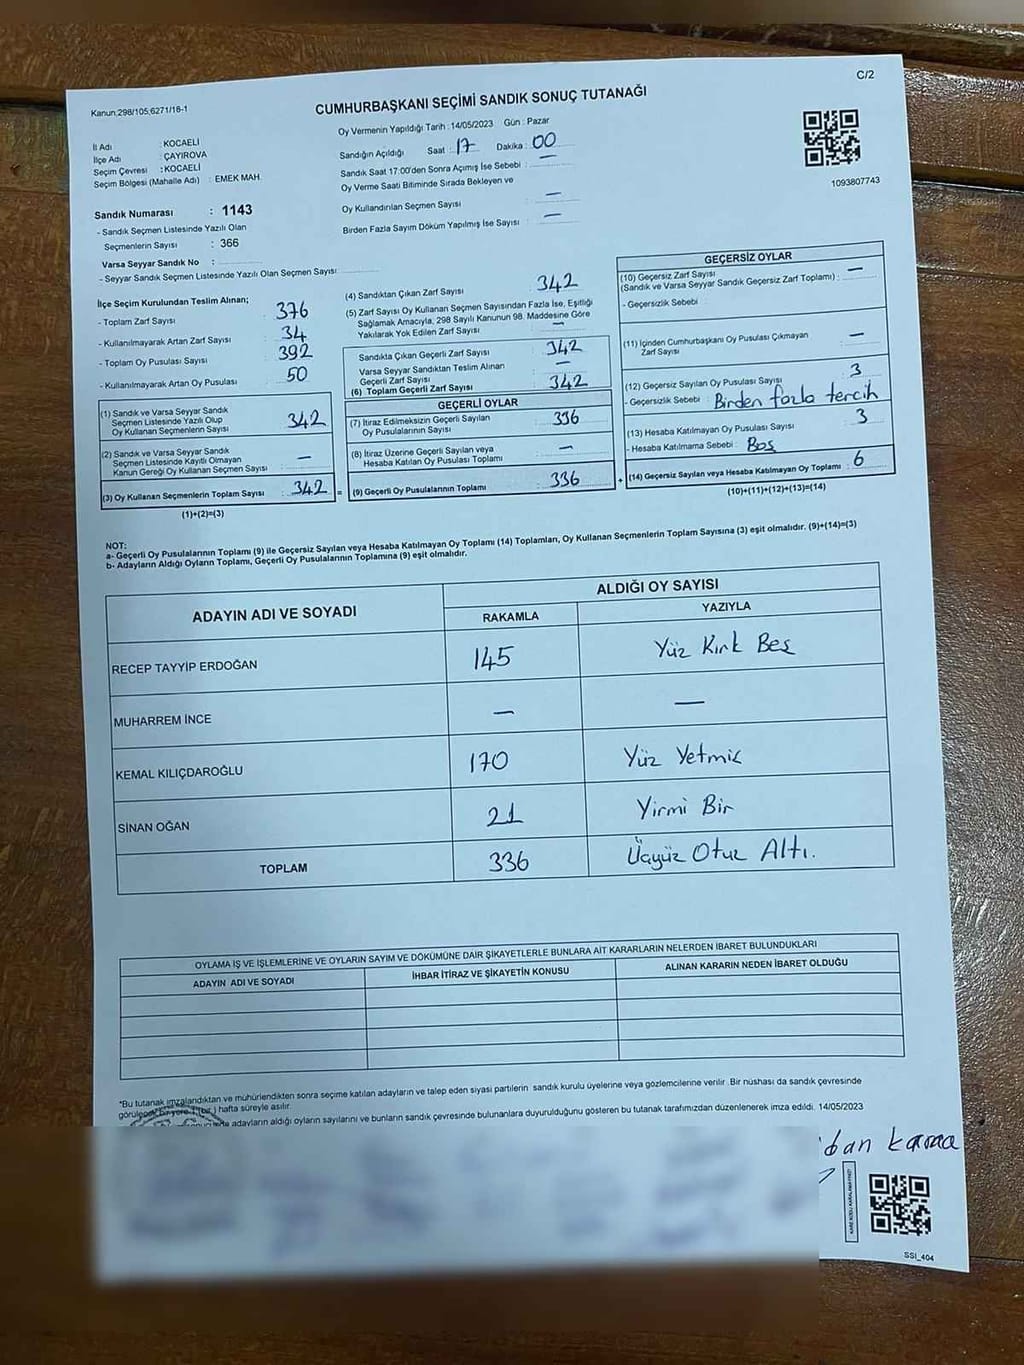 C/2
Kanun:298/105;6271/18-1
CUMHURBAŞKANI SEÇİMİ SANDIK SONUÇ TUTANAĞI
Oy Vermenin Yapıldığı Tarih : 14/05/2023 Gün : Pazar
İl Adı : KOCAELİ
İlçe Adı : ÇAYIROVA
Seçim Çevresi : KOCAELİ
Seçim Bölgesi (Mahalle Adı) : EMEK MAH.
Sandığın Açıldığı Saat : 17 Dakika : 00
Sandık Saat 17:00'den Sonra Açılmış İse Sebebi : —
Oy Verme Saati Bitiminde Sırada Bekleyen ve
Oy Kullandırılan Seçmen Sayısı : —
Birden Fazla Sayım Döküm Yapılmış İse Sayısı : —
1093807743
Sandık Numarası : 1143
- Sandık Seçmen Listesinde Yazılı Olan
Seçmenlerin Sayısı : 366
Varsa Seyyar Sandık No :
- Seyyar Sandık Seçmen Listesinde Yazılı Olan Seçmen Sayısı:
İlçe Seçim Kurulundan Teslim Alınan;
- Toplam Zarf Sayısı : 376
- Kullanılmayarak Artan Zarf Sayısı : 34
- Toplam Oy Pusulası Sayısı : 392
- Kullanılmayarak Artan Oy Pusulası : 50
(1) Sandık ve Varsa Seyyar Sandık
Seçmen Listesinde Yazılı Olup
Oy Kullanan Seçmenlerin Sayısı : 342
(2) Sandık ve Varsa Seyyar Sandık
Seçmen Listesinde Kayıtlı Olmayan
Kanun Gereği Oy Kullanan Seçmen Sayısı : —
(3) Oy Kullanan Seçmenlerin Toplam Sayısı : 342 =
(1)+(2)=(3)
(4) Sandıktan Çıkan Zarf Sayısı : 342
(5) Zarf Sayısı Oy Kullanan Seçmen Sayısından Fazla İse, Eşitliği
Sağlamak Amacıyla, 298 Sayılı Kanunun 98. Maddesine Göre
Yakılarak Yok Edilen Zarf Sayısı : —
Sandıkta Çıkan Geçerli Zarf Sayısı : 342
Varsa Seyyar Sandıktan Teslim Alınan
Geçerli Zarf Sayısı : —
(6) Toplam Geçerli Zarf Sayısı : 342
GEÇERLİ OYLAR
(7) İtiraz Edilmeksizin Geçerli Sayılan
Oy Pusulalarının Sayısı : 336
(8) İtiraz Üzerine Geçerli Sayılan veya
Hesaba Katılan Oy Pusulası Toplamı : —
(9) Geçerli Oy Pusulalarının Toplamı : 336 +
GEÇERSİZ OYLAR
(10) Geçersiz Zarf Sayısı
(Sandık ve Varsa Seyyar Sandık Geçersiz Zarf Toplamı) : —
- Geçersizlik Sebebi :
(11) İçinden Cumhurbaşkanı Oy Pusulası Çıkmayan
Zarf Sayısı : —
(12) Geçersiz Sayılan Oy Pusulası Sayısı : 3
- Geçersizlik Sebebi : Birden fazla tercih
(13) Hesaba Katılmayan Oy Pusulası Sayısı : 3
- Hesaba Katılmama Sebebi : Boş
(14) Geçersiz Sayılan veya Hesaba Katılmayan Oy Toplamı : 6
(10)+(11)+(12)+(13)=(14)
NOT:
a- Geçerli Oy Pusulalarının Toplamı (9) ile Geçersiz Sayılan veya Hesaba Katılmayan Oy Toplamı (14) Toplamları, Oy Kullanan Seçmenlerin Toplam Sayısına (3) eşit olmalıdır. (9)+(14)=(3)
b- Adayların Aldığı Oyların Toplamı, Geçerli Oy Pusulalarının Toplamına (9) eşit olmalıdır.
ADAYIN ADI VE SOYADI
ALDIĞI OY SAYISI
RAKAMLA YAZIYLA
RECEP TAYYİP ERDOĞAN 145 Yüz Kırk Beş
MUHARREM İNCE — —
KEMAL KILIÇDAROĞLU 170 Yüz Yetmiş
SİNAN OĞAN 21 Yirmi Bir
TOPLAM 336 Üçyüz Otuz Altı.
OYLAMA İŞ VE İŞLEMLERİNE VE OYLARIN SAYIM VE DÖKÜMÜNE DAİR ŞİKAYETLERLE BUNLARA AİT KARARLARIN NELERDEN İBARET BULUNDUKLARI
ADAYIN ADI VE SOYADI İHBAR İTİRAZ VE ŞİKAYETİN KONUSU ALINAN KARARIN NEDEN İBARET OLDUĞU
*Bu tutanak imzalandıktan ve mühürlendikten sonra seçime katılan adayların ve talep eden siyasi partilerin sandık kurulu üyelerine veya gözlemcilerine verilir. Bir nüshası da sandık çevresinde
hafta süreyle asılır.
adayların aldığı oyların sayılarını ve bunların sandık çevresinde bulunanlara duyurulduğunu gösteren bu tutanak tarafımızdan düzenlenerek imza edildi. 14/05/2023
SSI_404